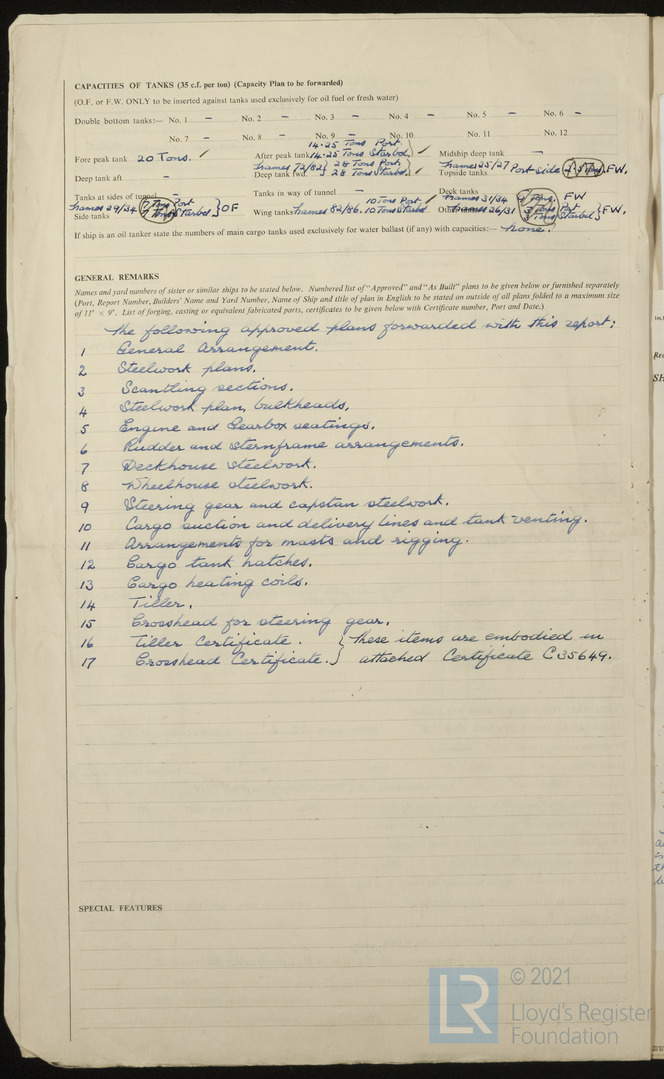 CAPACITIES OF TANKS (35 c.f. per ton) (Capacity Plan to be forwarded)
(O.F. or F.W. ONLY to be inserted against tanks used exclusively for oil fuel or fresh water)
Double bottom tanks:— No. 1 - No. 2 - No. 3 - No. 4 - No. 5 - No. 6 -
No. 7 - No. 8 - No. 9 - No. 10 No. 11 No. 12
Fore peak tank 20 Tons. ✓ After peak tank 14·25 Tons Port. 14·25 Tons Starbd. ✓ Midship deep tank -
Deep tank aft - Deep tank fwd. Frames 72/82 } 28 Tons Port, 28 Tons Starbd. ✓ Topside tanks Frames 25/27 Port Side FW.
Tanks at sides of tunnel - Tanks in way of tunnel - Deck tanks Frames 31/34 FW
Side tanks Frames 29/34 Port Starbd } OF Wing tanks Frames 82/86. 10 Tons Port, 10 Tons Starbd. ✓ Frames 26/31 3 Tons Port 3 Tons Starbd } FW.
If ship is an oil tanker state the numbers of main cargo tanks used exclusively for water ballast (if any) with capacities:— None.
GENERAL REMARKS
Names and yard numbers of sister or similar ships to be stated below. Numbered list of "Approved" and "As Built" plans to be given below or furnished separately
(Port, Report Number, Builders' Name and Yard Number, Name of Ship and title of plan in English to be stated on outside of all plans folded to a maximum size
of 11" × 9". List of forging, casting or equivalent fabricated parts, certificates to be given below with Certificate number, Port and Date.)
The following approved plans forwarded with this report:
1 General Arrangement.
2 Steelwork plans.
3 Scantling sections.
4 Steelwork plan, bulkheads.
5 Engine and Gearbox seatings.
6 Rudder and sternframe arrangements.
7 Deckhouse steelwork.
8 Wheelhouse steelwork.
9 Steering gear and capstan steelwork.
10 Cargo suction and delivery lines and tank venting.
11 Arrangements for masts and rigging.
12 Cargo tank hatches.
13 Cargo heating coils.
14 Tiller.
15 Crosshead for steering gear.
16 Tiller Certificate. } These items are embodied in
17 Crosshead Certificate. } attached Certificate C35649.
SPECIAL FEATURES
© 2021
LR Lloyd's Register
Foundation